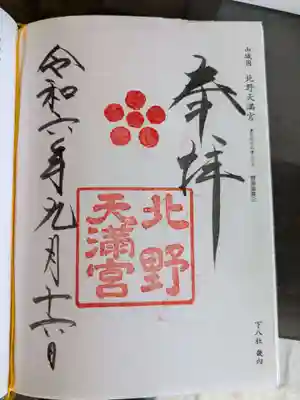 山城国 北野天満宮
奉拝
北野
天満宮
下八社
令和六年九月十六日